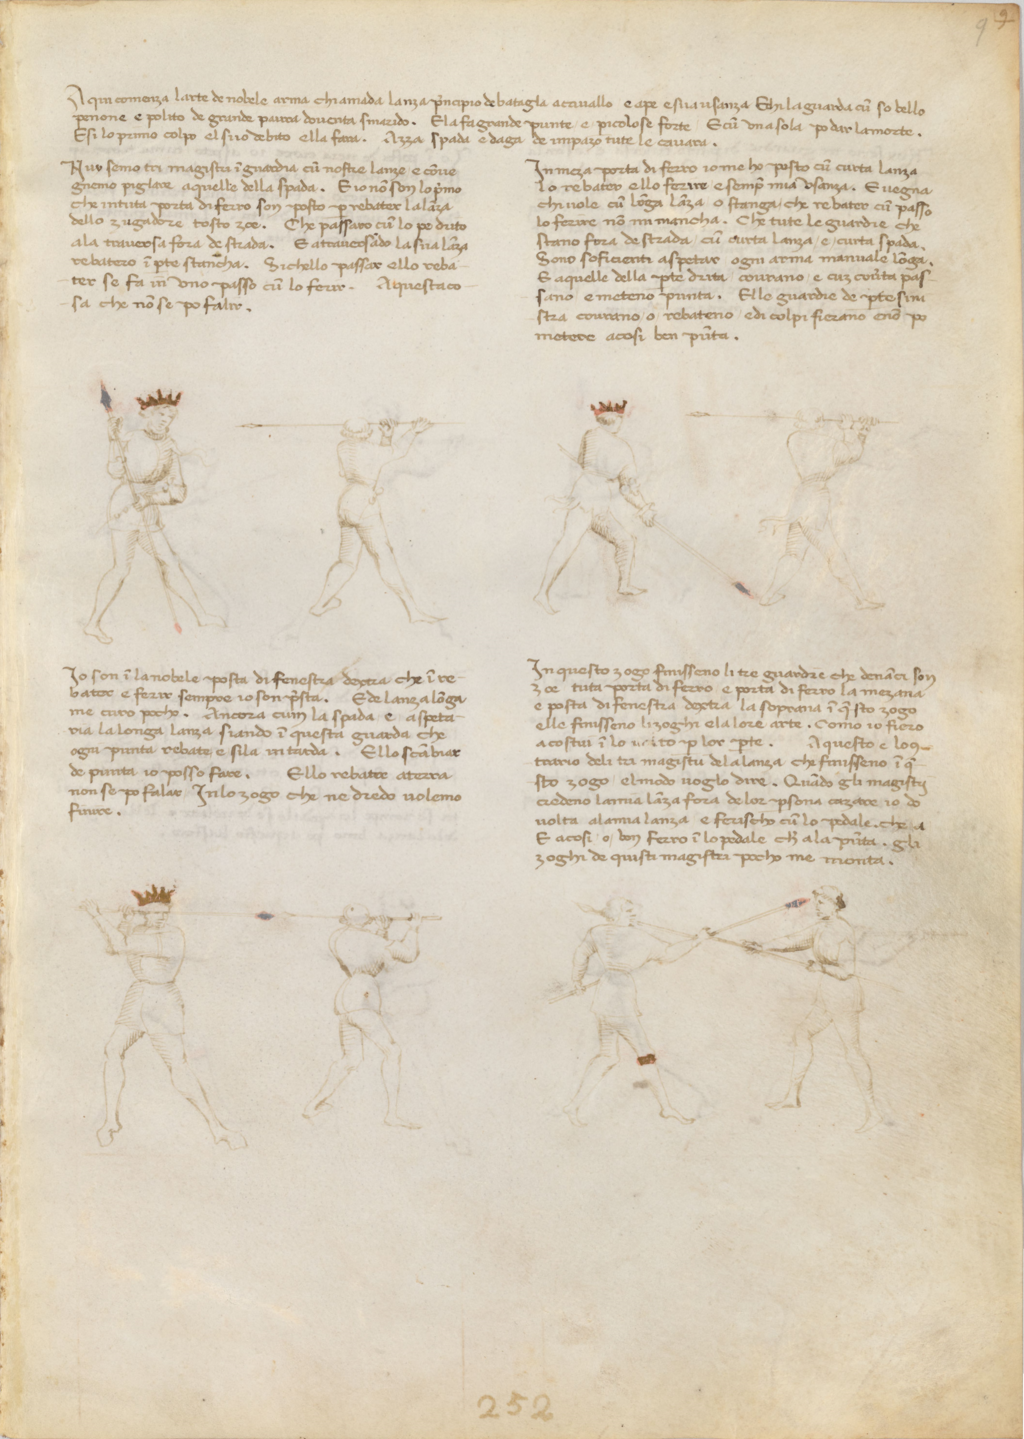 9 9
A qui comenza larte de nobele arma chiamada lanza p̃ncipio de batagla a cavallo e a pe e sua usanza. Chi la guarda cū so bello
penone e polito de grande paura doventa smarido. E la fa grande punte e picolose forte. E cū una sola po dar la morte.
E si lo primo colpo el suo debito ella fara. Azza spada e daga de impazo tute le cavara.
Nuy semo tri magistri ī guardia cū nostre lanze e cōve
gnemo piglare a quelle della spada. E io nō son lo p̃mo
che in tuta porta di ferro son posto p rebater la lāza
dello zugadore tosto zoe. Che passaro cū lo pe drito
ala traversa fora de strada. E atraversādo la sua lāza
rebatero ī pte stancha. Si chello passar e lo reba
ter se fa in uno passo cū lo ferir. A questa co
sa che nō se po falir.
In meza porta di ferro io me ho posto cū curta lanza
lo rebater e llo ferire e semp̃ mia usanza. E vegna
chi vole cū lōga lāza o stanga che rebater cū passo
lo ferire nō mi mancha. Che tute le guardie che
stano fora de strada cū curta lanza e curta spada.
Sono soficienti aspetar ogni arma manuale lōga.
E a quelle della pte drita covrano e cū covta pas
sano e meteno punta. E lle guardie de pte sini
stra covrano o rebateno e di colpi fierano e nō po
metere acosi ben pūta.
Io son ī la nobele posta di fenestra dextra che ī re
bater e ferir sempre io son p̃sta. E de lanza lōga
me curo pocho. Ancora cum la spada e aspeta
ria la longa lanza siando ī questa guarda che
ogni punta rebate e si la intarda. E llo scābiar
de punta io posso fare. E llo rebatre a terra
non se po falar. In lo zogo che ne dredo volemo
finire.
In questo zogo finisseno li tre guardie che denāci son
zoe tuta porta di ferro e porta di ferro la mezana
e posta di fenestra dextra la soprana ī q̄sto zogo
elle finisseno li zoghi e la lore arte. Como io fiero
a costui ī lo p lor pte. A questo e lo 9
trario deli tri magistri dela lanza che finisseno ī q̄
sto zogo el modo voglo dire. Quādo gli magistri
credeno la mia lāza fora de lor p̱sona cazare io do
volta ala mia lanza e ferischo cū lo pedale. che a
E acosi bon ferro ī lo pedale ch̄ ala pūta. gli
zoghi de quisti magistri pocho me monta.
252